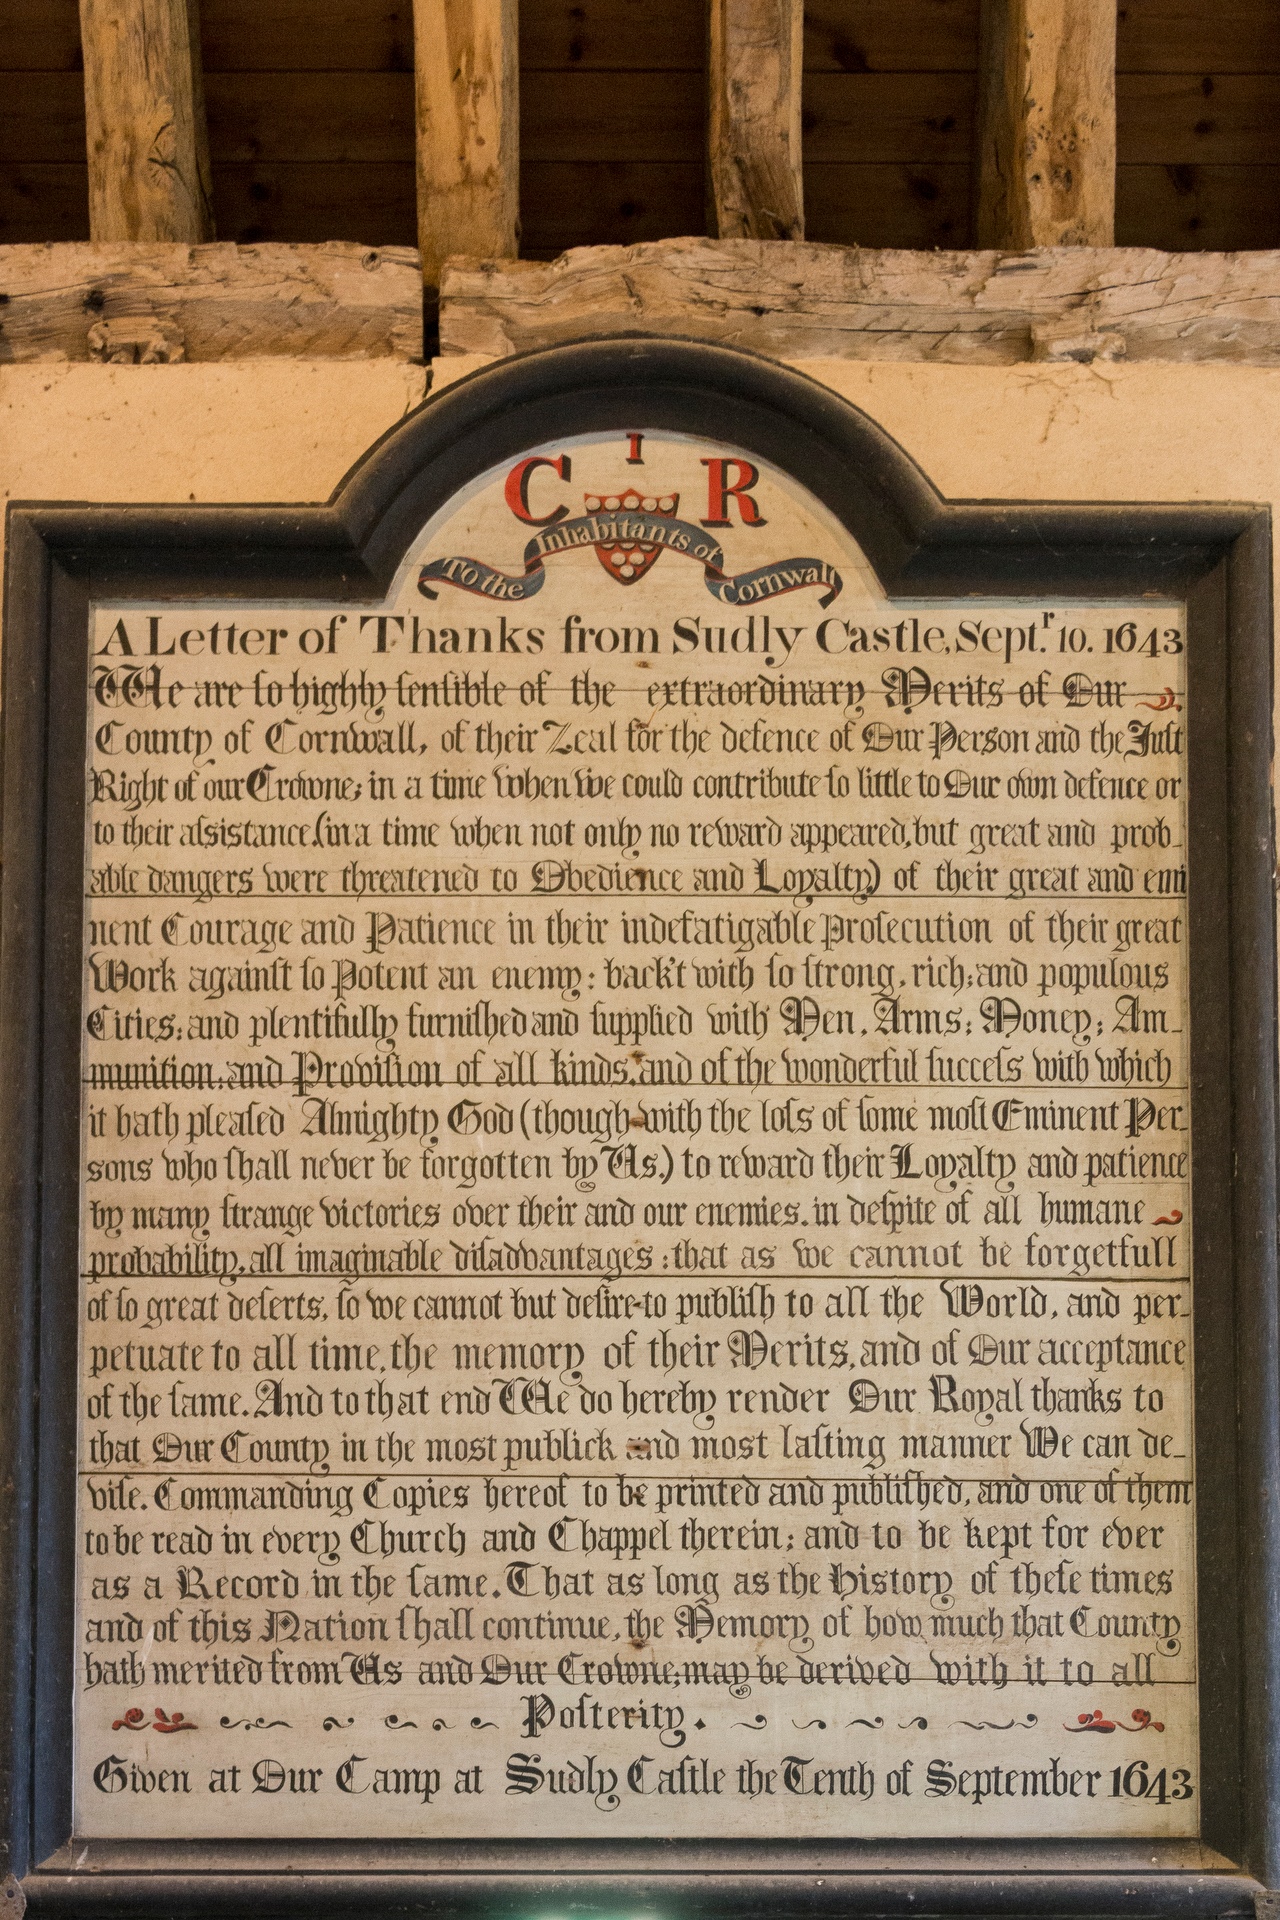 C I R
To the Inhabitants of Cornwall
A Letter of Thanks from Sudly Castle, Sept.r 10. 1643
We are ſo highly ſenſible of the extraordinary Merits of Our
County of Cornwall, of their Zeal for the defence of Our Person and the Juſt
Right of our Crowne; in a time when we could contribute ſo little to Our own defence or
to their aſsistance, (in a time when not only no reward appeared, but great and prob-
able dangers were threatened to Obedience and Loyalty) of their great and emi
nent Courage and Patience in their indefatigable Proſecution of their great
Work againſt ſo Potent an enemy: back't with ſo ſtrong, rich; and populous
Cities; and plentifully furniſhed and ſupplied with Men, Arms; Money; Am-
munition; and Proviſion of all kinds, and of the wonderful ſucceſs with which
it hath pleaſed Almighty God (though with the loſs of ſome moſt Eminent Per-
sons who ſhall never be forgotten by Us.) to reward their Loyalty and patience
by many ſtrange victories over their and our enemies. in deſpite of all humane
probability, all imaginable diſadvantages: that as we cannot be forgetfull
of ſo great deſerts, ſo we cannot but deſire to publiſh to all the World, and per-
petuate to all time, the memory of their Merits, and of Our acceptance
of the ſame. And to that end We do hereby render Our Royal thanks to
that Our County in the most publick and most laſting manner We can de-
viſe. Commanding Copies hereof to be printed and publiſhed, and one of them
to be read in every Church and Chappel therein; and to be kept for ever
as a Record in the ſame. That as long as the History of theſe times
and of this Nation ſhall continue, the Memory of how much that County
hath merited from Us and Our Crowne; may be derived with it to all
Poſterity.
Given at Our Camp at Sudly Caſtle the Tenth of September 1643